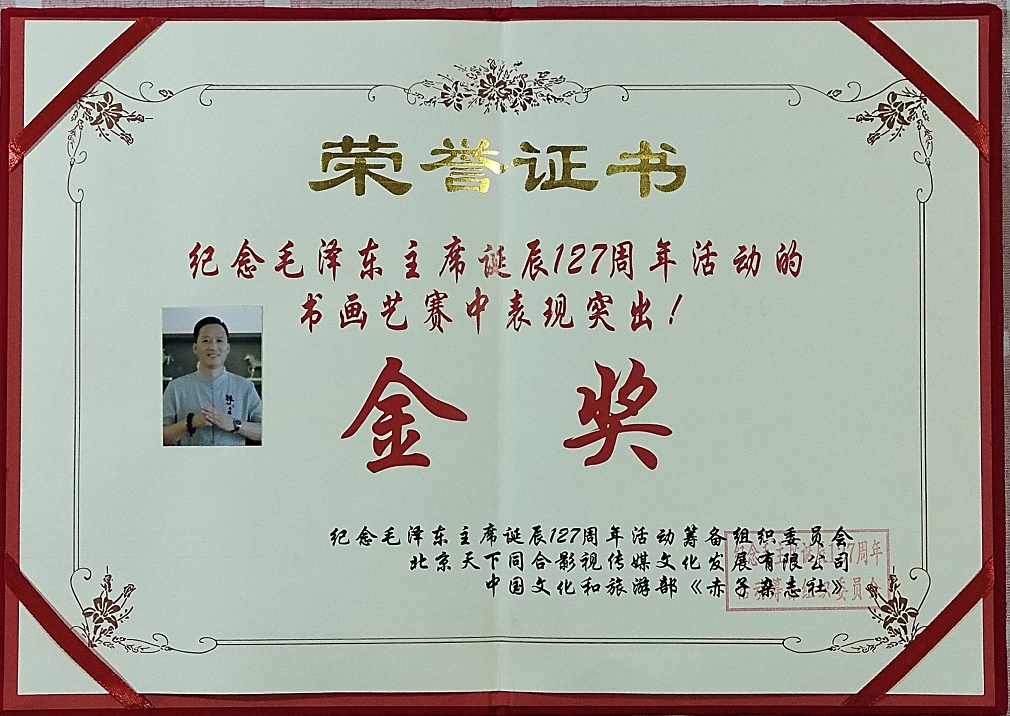 荣誉证书
纪念毛泽东主席诞辰127周年活动的
书画艺赛中表现突出！
金奖
纪念毛泽东主席诞辰127周年活动筹备组织委员会
北京天下同合影视传媒文化发展有限公司
中国文化和旅游部《赤子杂志社》